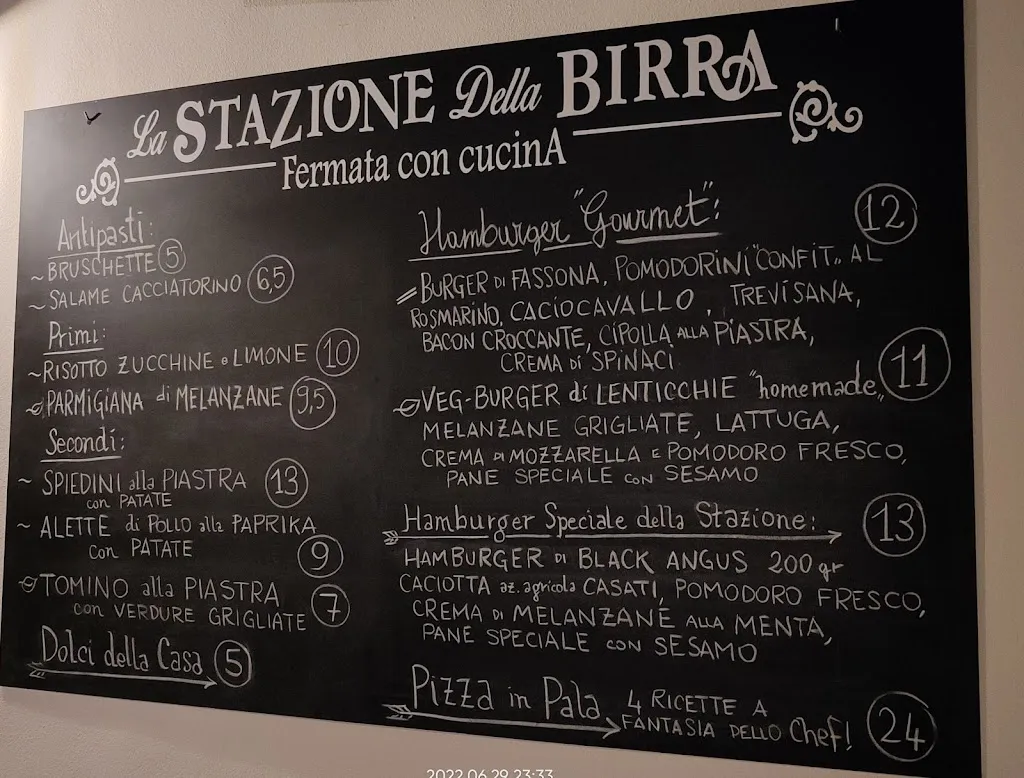 La STAZIONE Della BIRRA
Fermata con cucinA
Antipasti:
~ BRUSCHETTE 5
~ SALAME CACCIATORINO 6,5
Primi:
~ RISOTTO ZUCCHINE e LIMONE 10
PARMIGIANA di MELANZANE 9,5
Secondi:
~ SPIEDINI alla PIASTRA 13
con PATATE
~ ALETTE di POLLO alla PAPRIKA
con PATATE 9
TOMINO alla PIASTRA 7
con VERDURE GRIGLIATE
Dolci della Casa 5
Hamburger "Gourmet": 12
BURGER DI FASSONA, POMODORINI "CONFIT" AL
ROSMARINO, CACIOCAVALLO, TREVISANA,
BACON CROCCANTE, CIPOLLA ALLA PIASTRA,
CREMA DI SPINACI
VEG-BURGER di LENTICCHIE "homemade" 11
MELANZANE GRIGLIATE, LATTUGA,
CREMA DI MOZZARELLA E POMODORO FRESCO,
PANE SPECIALE CON SESAMO
Hamburger Speciale della Stazione: 13
HAMBURGER DI BLACK ANGUS 200 gr
CACIOTTA az. agricola CASATI, POMODORO FRESCO,
CREMA DI MELANZANE ALLA MENTA,
PANE SPECIALE CON SESAMO
Pizza in Pala 4 RICETTE A
FANTASIA DELLO Chef! 24
2022.06.29 23:33